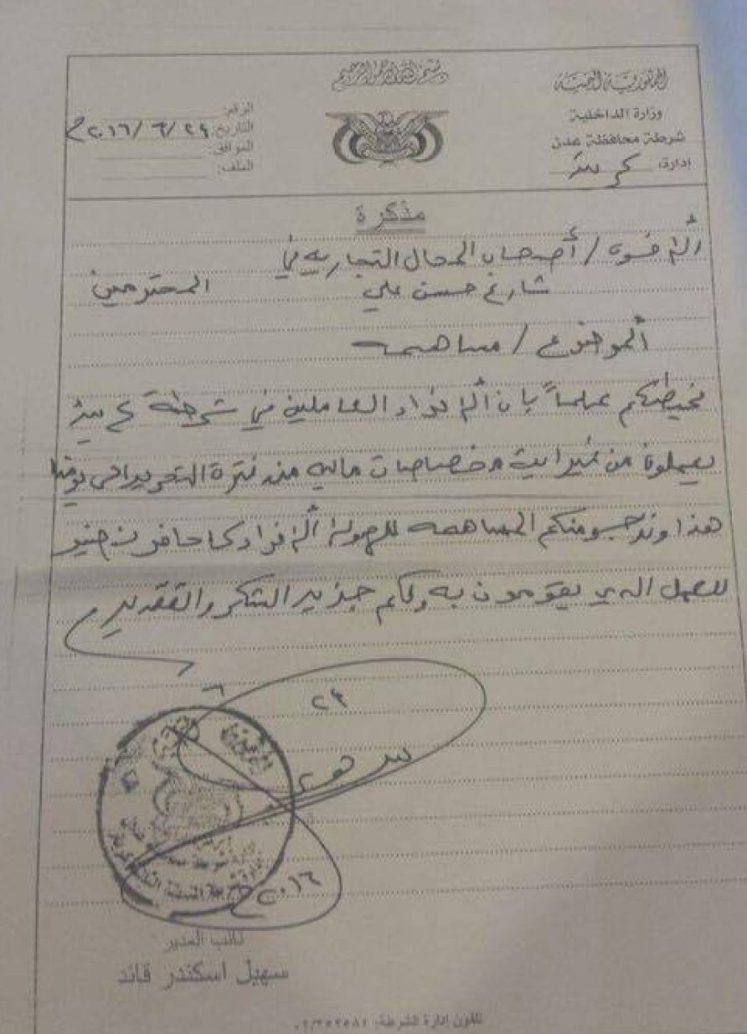 بسم الله الرحمن الرحيم
الجمهورية اليمنية
وزارة الداخلية
شرطة محافظة عدن
إدارة كريتر
الرقم:
التاريخ: ٢٩/ ٦/ ٢٠١٦م
الموافق:
الملف:
مذكرة
الإخوة / أصحاب المحال التجارية في
شارع حسن علي المحترمين
الموضوع / مساهمه
نحيطكم علماً بان الافراد العاملين في شرطة كريتر
يعملون من غير اية مخصصات ماليه منذ فترة التحرير الى يومنا
هذا ونرجو منكم المساهمه لهولاء الافراد كحافز
للعمل الذي يقومون به ولكم جزيل الشكر والتقدير
٢٩
٦
٢٠١٦م
نائب المدير
سهيل اسكندر قائد
تلفون إدارة الشرطة: ٠٢/٢٥٢٥٨١